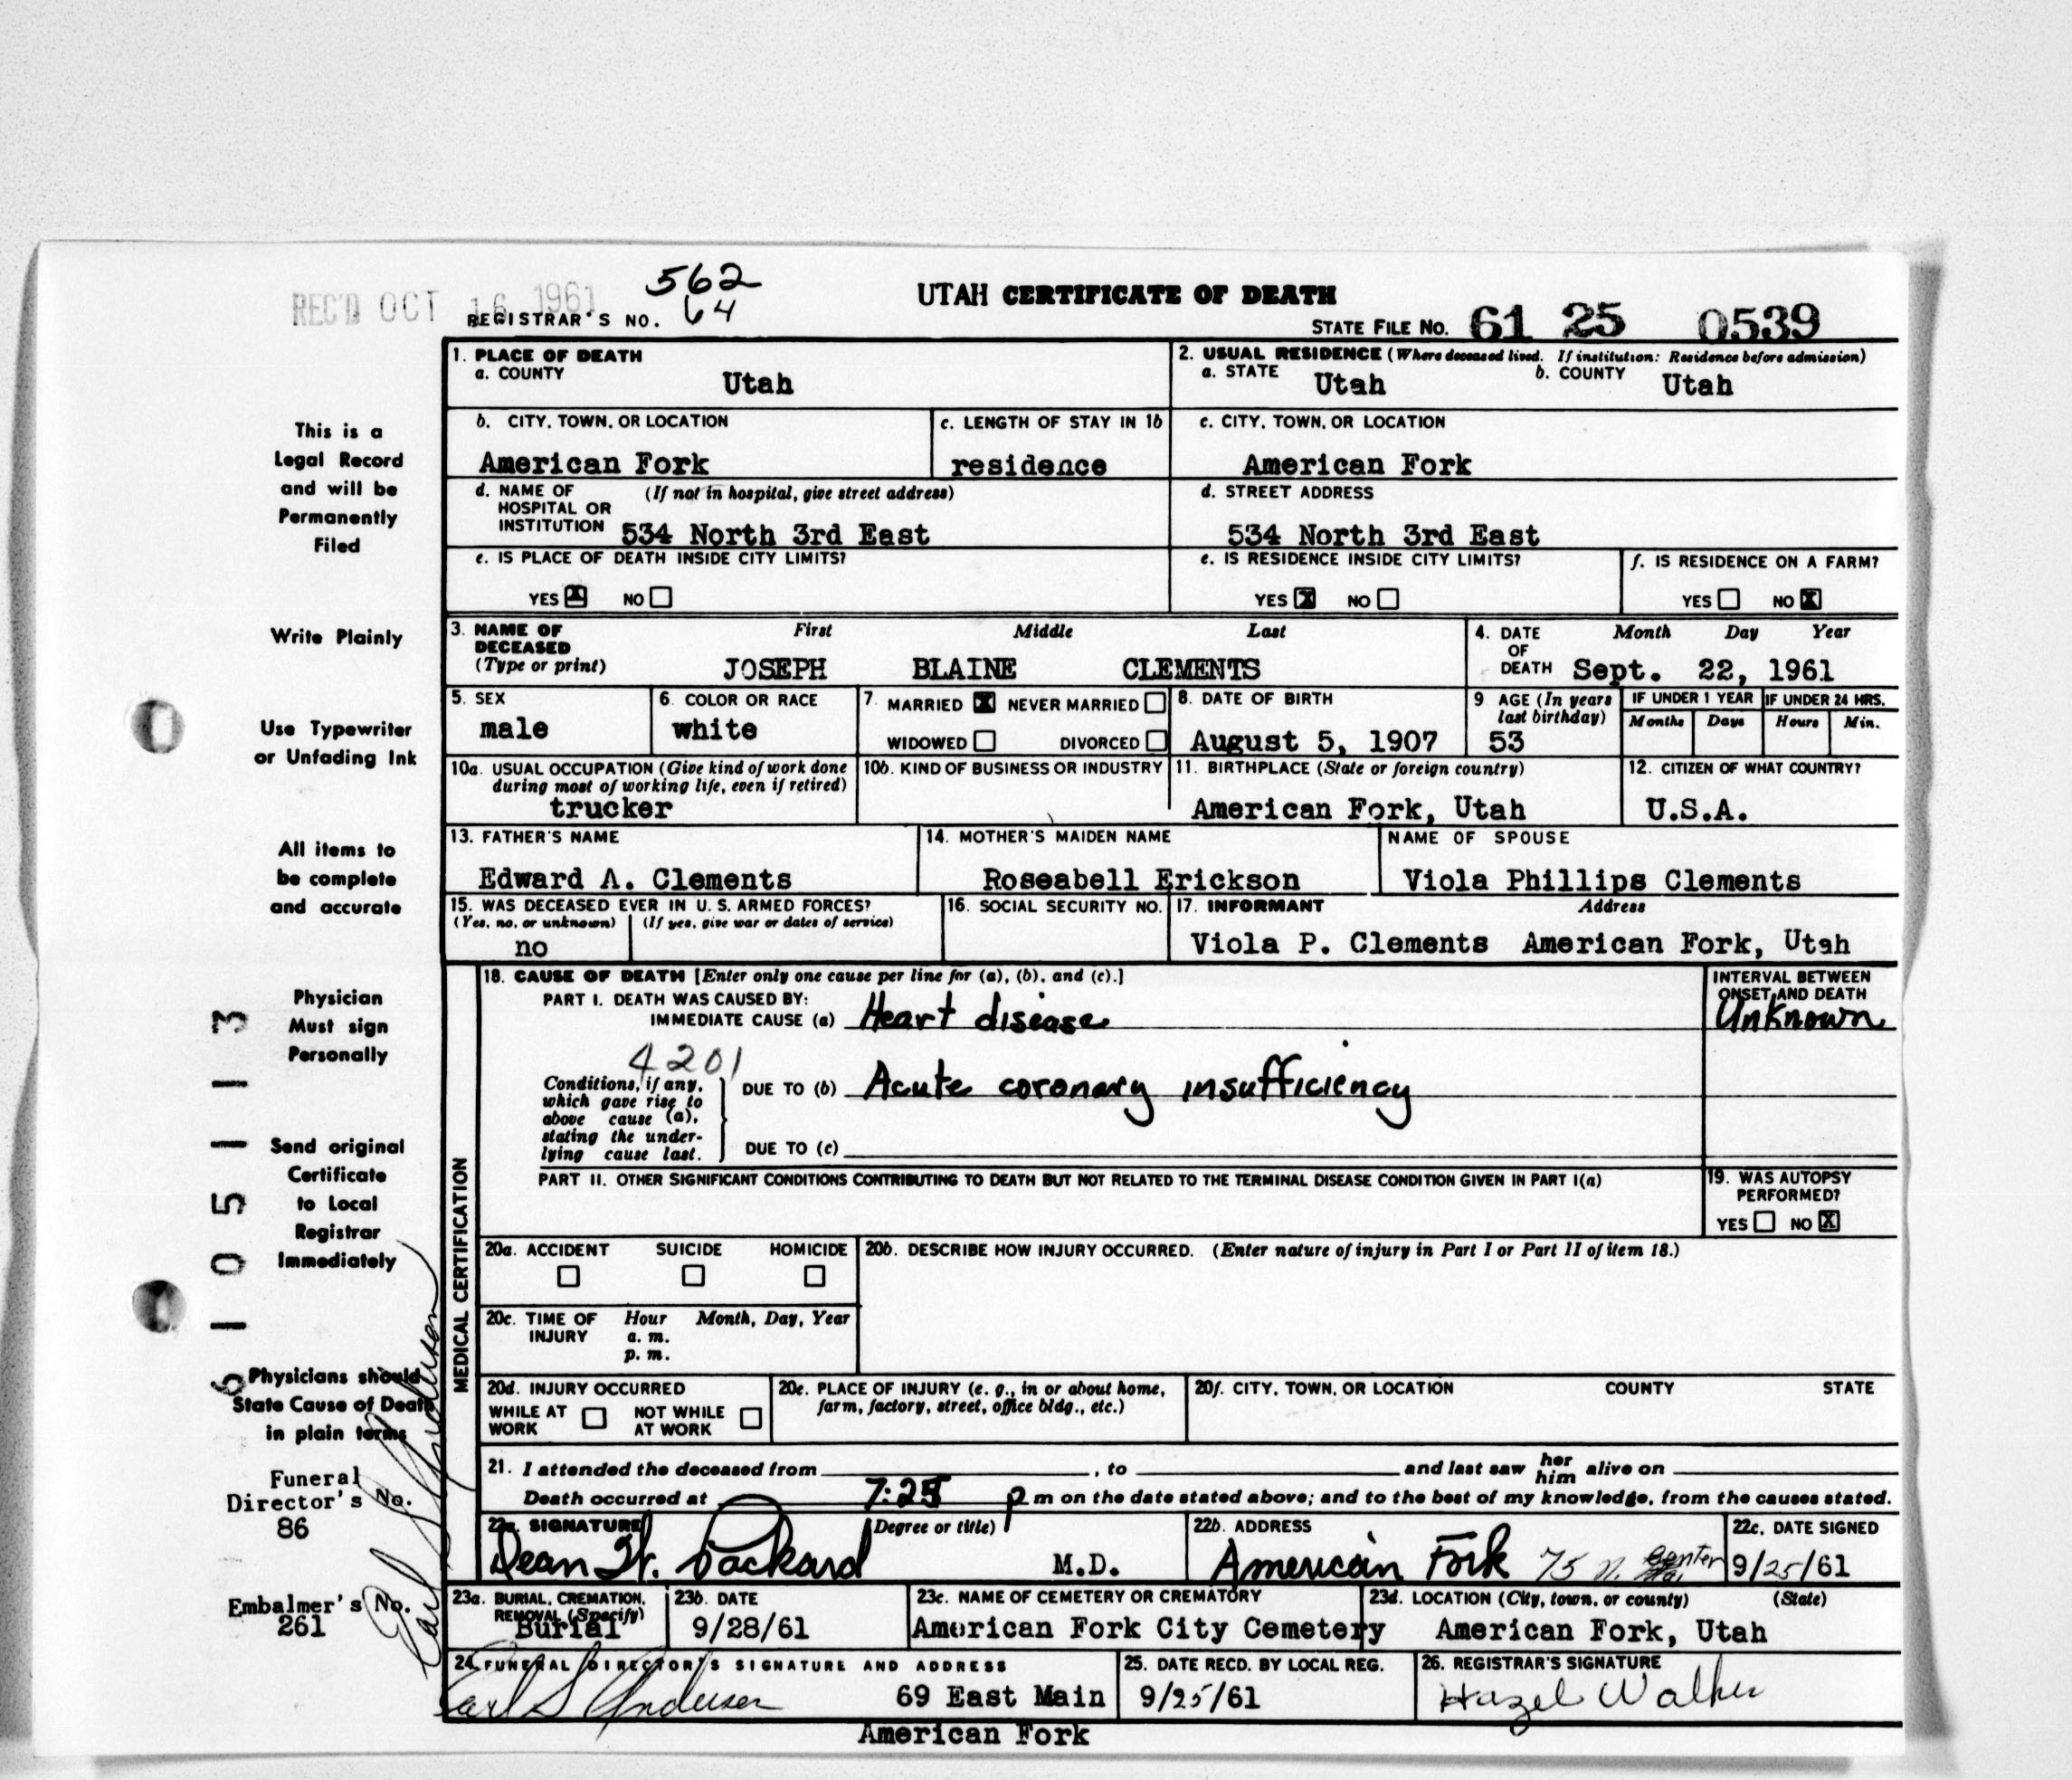 REC'D OCT 16 1961
562
REGISTRAR'S NO. 64
UTAH CERTIFICATE OF DEATH
STATE FILE No. 61 25 0539
1. PLACE OF DEATH
a. COUNTY Utah
2. USUAL RESIDENCE (Where deceased lived. If institution: Residence before admission)
a. STATE Utah b. COUNTY Utah
b. CITY, TOWN, OR LOCATION
American Fork
c. LENGTH OF STAY IN 1b
residence
c. CITY, TOWN, OR LOCATION
American Fork
d. NAME OF HOSPITAL OR INSTITUTION (If not in hospital, give street address)
534 North 3rd East
d. STREET ADDRESS
534 North 3rd East
e. IS PLACE OF DEATH INSIDE CITY LIMITS?
YES X NO
e. IS RESIDENCE INSIDE CITY LIMITS?
YES X NO
f. IS RESIDENCE ON A FARM?
YES NO X
3. NAME OF DECEASED (Type or print)
First Middle Last
JOSEPH BLAINE CLEMENTS
4. DATE OF DEATH
Month Day Year
Sept. 22, 1961
5. SEX
male
6. COLOR OR RACE
white
7. MARRIED X NEVER MARRIED
WIDOWED DIVORCED
8. DATE OF BIRTH
August 5, 1907
9 AGE (In years last birthday)
53
IF UNDER 1 YEAR IF UNDER 24 HRS.
Months Days Hours Min.
10a. USUAL OCCUPATION (Give kind of work done during most of working life, even if retired)
trucker
10b. KIND OF BUSINESS OR INDUSTRY
11. BIRTHPLACE (State or foreign country)
American Fork, Utah
12. CITIZEN OF WHAT COUNTRY?
U.S.A.
13. FATHER'S NAME
Edward A. Clements
14. MOTHER'S MAIDEN NAME
Roseabell Erickson
NAME OF SPOUSE
Viola Phillips Clements
15. WAS DECEASED EVER IN U. S. ARMED FORCES?
(Yes, no, or unknown) (If yes, give war or dates of service)
no
16. SOCIAL SECURITY NO.
17. INFORMANT Address
Viola P. Clements American Fork, Utah
MEDICAL CERTIFICATION
18. CAUSE OF DEATH [Enter only one cause per line for (a), (b), and (c).]
PART I. DEATH WAS CAUSED BY:
IMMEDIATE CAUSE (a) Heart disease
INTERVAL BETWEEN ONSET AND DEATH
Unknown
4201
Conditions, if any, which gave rise to above cause (a), stating the underlying cause last.
DUE TO (b) Acute coronary insufficiency
DUE TO (c)
PART II. OTHER SIGNIFICANT CONDITIONS CONTRIBUTING TO DEATH BUT NOT RELATED TO THE TERMINAL DISEASE CONDITION GIVEN IN PART I(a)
19. WAS AUTOPSY PERFORMED?
YES NO X
20a. ACCIDENT SUICIDE HOMICIDE
20b. DESCRIBE HOW INJURY OCCURRED. (Enter nature of injury in Part I or Part II of item 18.)
20c. TIME OF INJURY Hour Month, Day, Year
a. m.
p. m.
20d. INJURY OCCURRED
WHILE AT WORK NOT WHILE AT WORK
20e. PLACE OF INJURY (e. g., in or about home, farm, factory, street, office bldg., etc.)
20f. CITY, TOWN, OR LOCATION COUNTY STATE
21. I attended the deceased from , to and last saw her him alive on
Death occurred at 7:25 p m on the date stated above; and to the best of my knowledge, from the causes stated.
22a. SIGNATURE (Degree or title)
Dean H. Packard M.D.
22b. ADDRESS
American Fork 75 N. Center
22c. DATE SIGNED
9/25/61
23a. BURIAL, CREMATION, REMOVAL (Specify)
Burial
23b. DATE
9/28/61
23c. NAME OF CEMETERY OR CREMATORY
American Fork City Cemetery
23d. LOCATION (City, town, or county) (State)
American Fork, Utah
24. FUNERAL DIRECTOR'S SIGNATURE AND ADDRESS
Earl S Anderson 69 East Main
American Fork
25. DATE RECD. BY LOCAL REG.
9/25/61
26. REGISTRAR'S SIGNATURE
Hazel Walker
This is a
Legal Record
and will be
Permanently
Filed
Write Plainly
Use Typewriter
or Unfading Ink
All items to
be complete
and accurate
Physician
Must sign
Personally
Send original
Certificate
to Local
Registrar
Immediately
Physicians should
State Cause of Death
in plain terms
Funeral
Director's No.
86
Embalmer's No.
261
Earl S Anderson
61051113